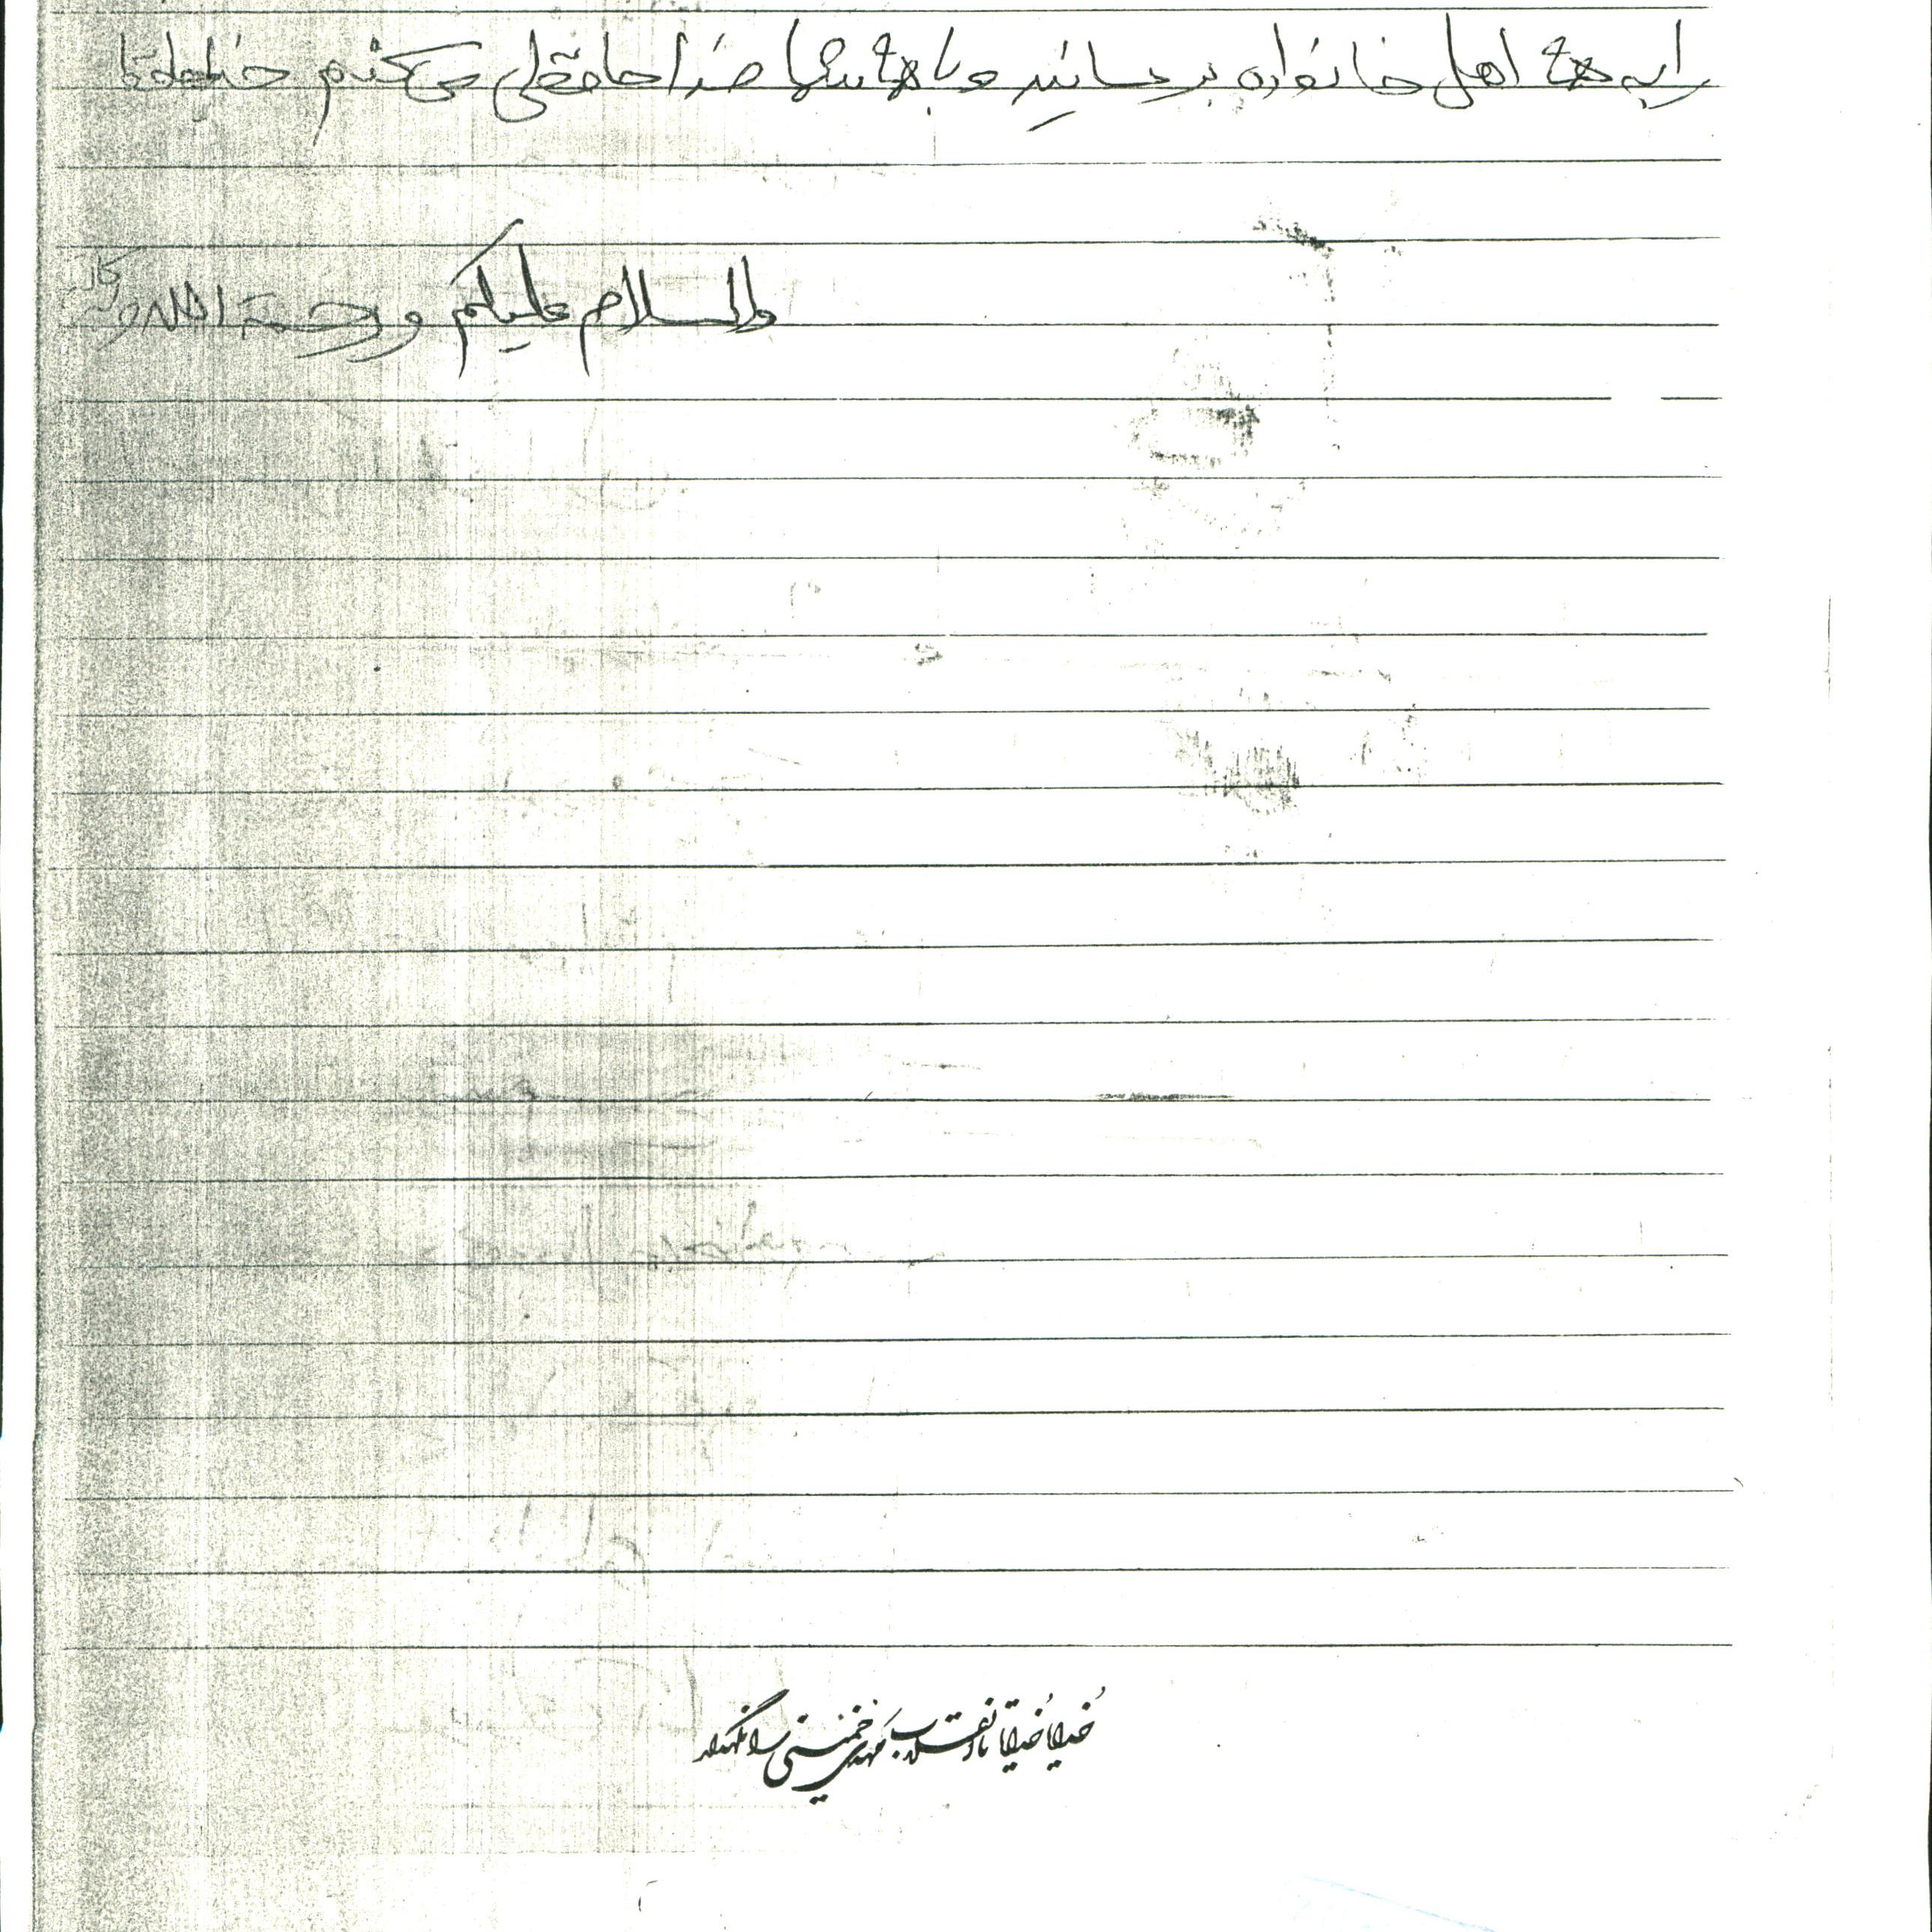 را به همه اهل خانواده برسانید و با همه شما خداحافظی می کنم خداحافظ
والسلام علیکم و رحمة الله وبرکاته
خدایا خدایا تا انقلاب مهدی خمینی را نگهدار